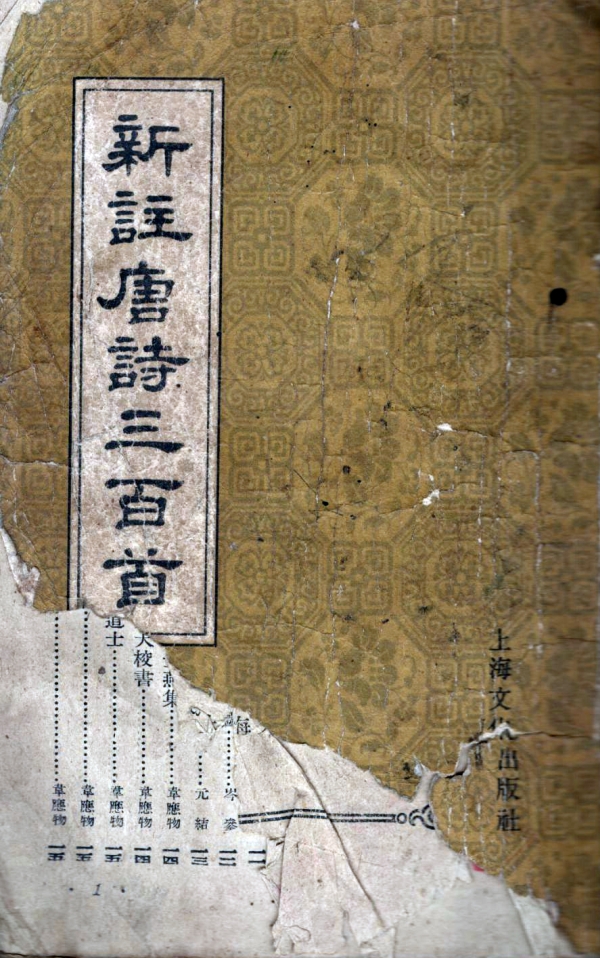 新註唐詩三百首
上海文化出版社
海
………岑參 一二
……元結 一三
燕集………韋應物 一四
校書………韋應物 一四
道士………韋應物 一五
………韋應物 一五
………韋應物 一五
1